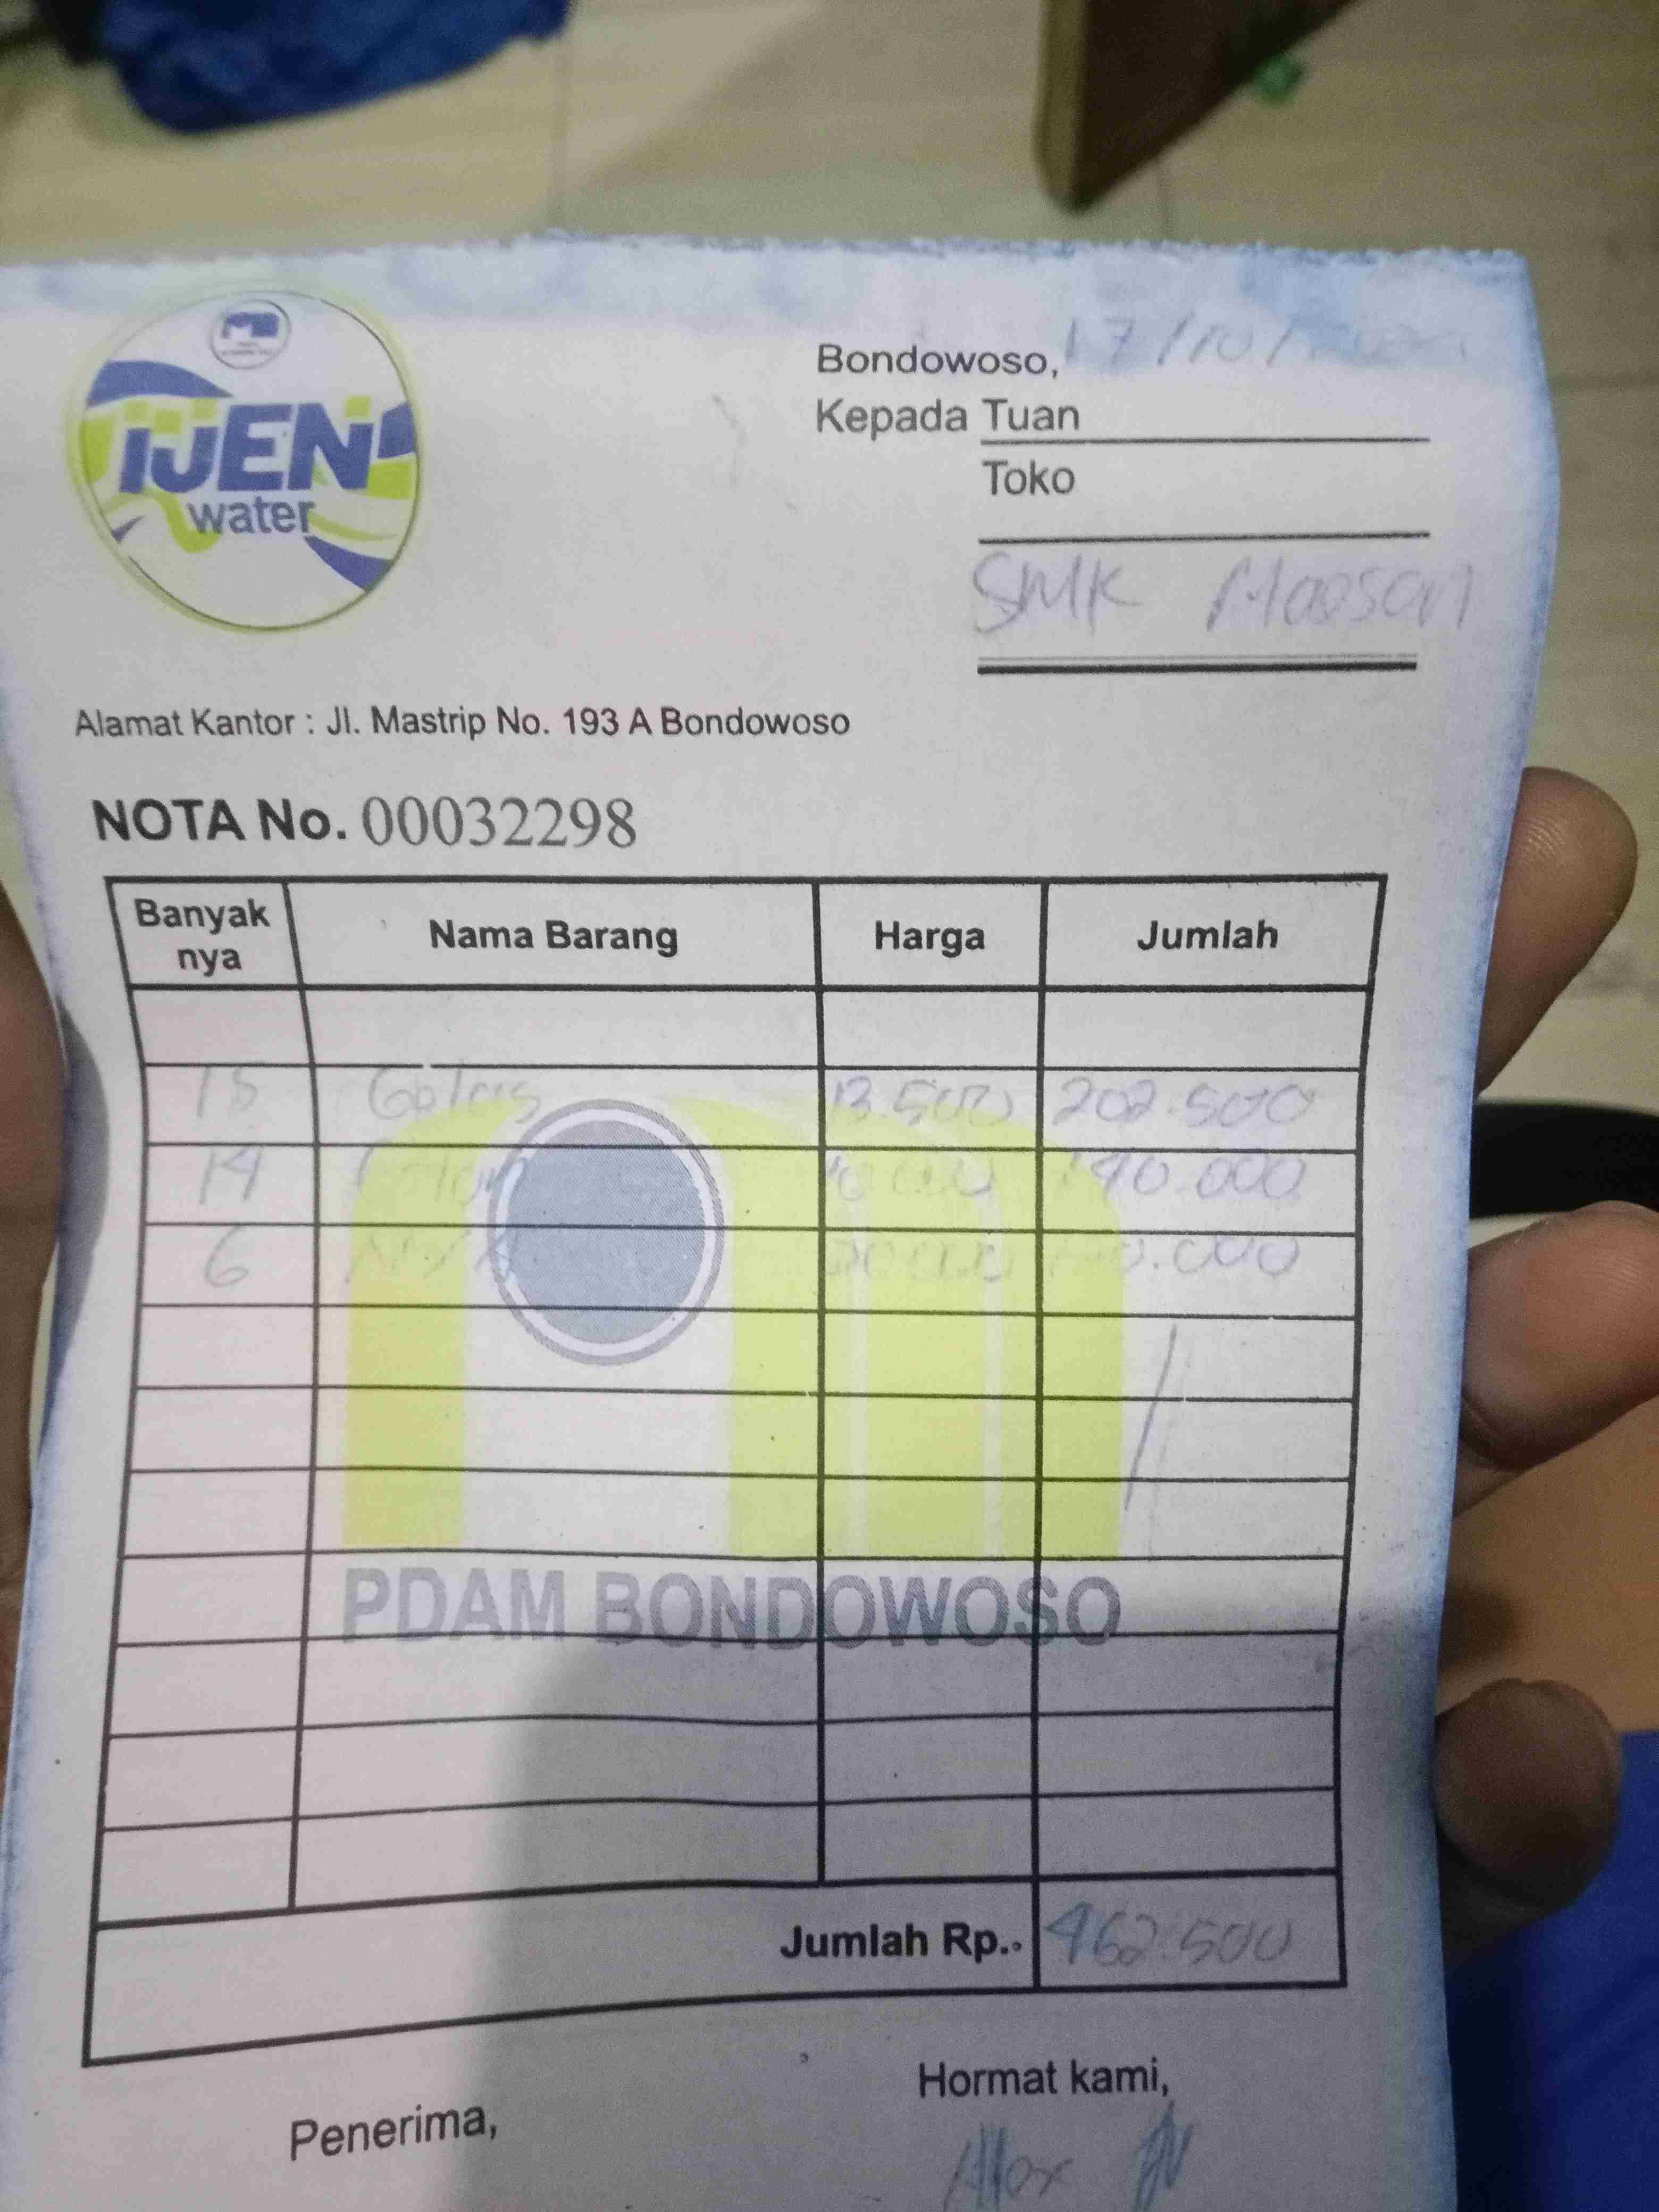 IJEN
water
Bondowoso, 17/10/
Kepada Tuan
Toko
SMK Maesan
Alamat Kantor : Jl. Mastrip No. 193 A Bondowoso
NOTA No. 00032298
Banyak nya Nama Barang Harga Jumlah
15 Gelas 13.500 202.500
14 10.000 140.000
6 20.000 .000
PDAM BONDOWOSO
Jumlah Rp.. 462.500
Hormat kami,
Penerima,
Alex